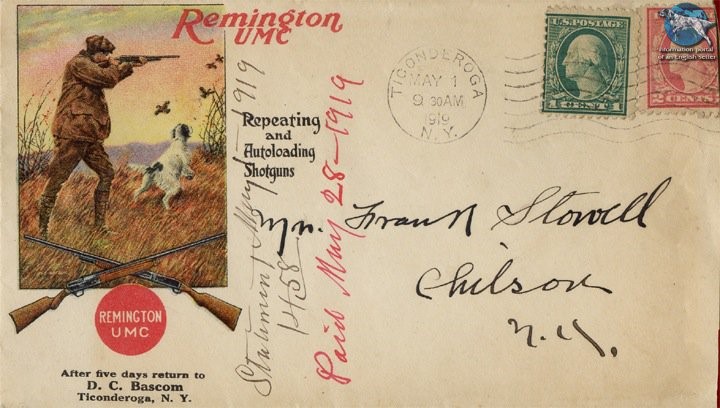 Remington
UMC
Repeating
and
Autoloading
Shotguns
TICONDEROGA
MAY 1
9 30 AM
1919
N.Y.
U.S. POSTAGE
1 CENT 1
2 CENTS 2
Information portal
of an English Setter
Statement May 1-1919
1458
Paid May 28-1919
Mr. Frank Stowell
Chilson
N.Y.
REMINGTON
UMC
After five days return to
D. C. Bascom
Ticonderoga, N. Y.